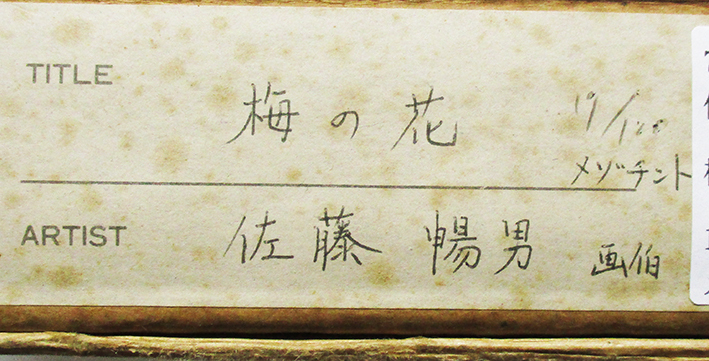 TITLE 梅の花 19/100
メゾチント
ARTIST 佐藤暢男 画伯